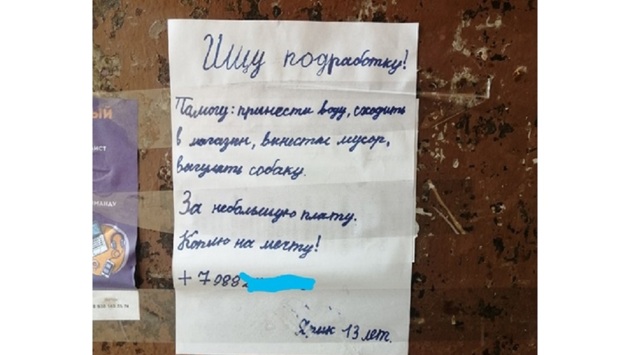 Ищу подработку!
Памогу: принести воду, сходить
в магазин, вынести мусор,
выгулять собаку.
За небольшую плату.
Коплю на мечту!
+ 7 989
Эрик 13 лет.
ЫЙ
ИСТ
ОМАНДУ